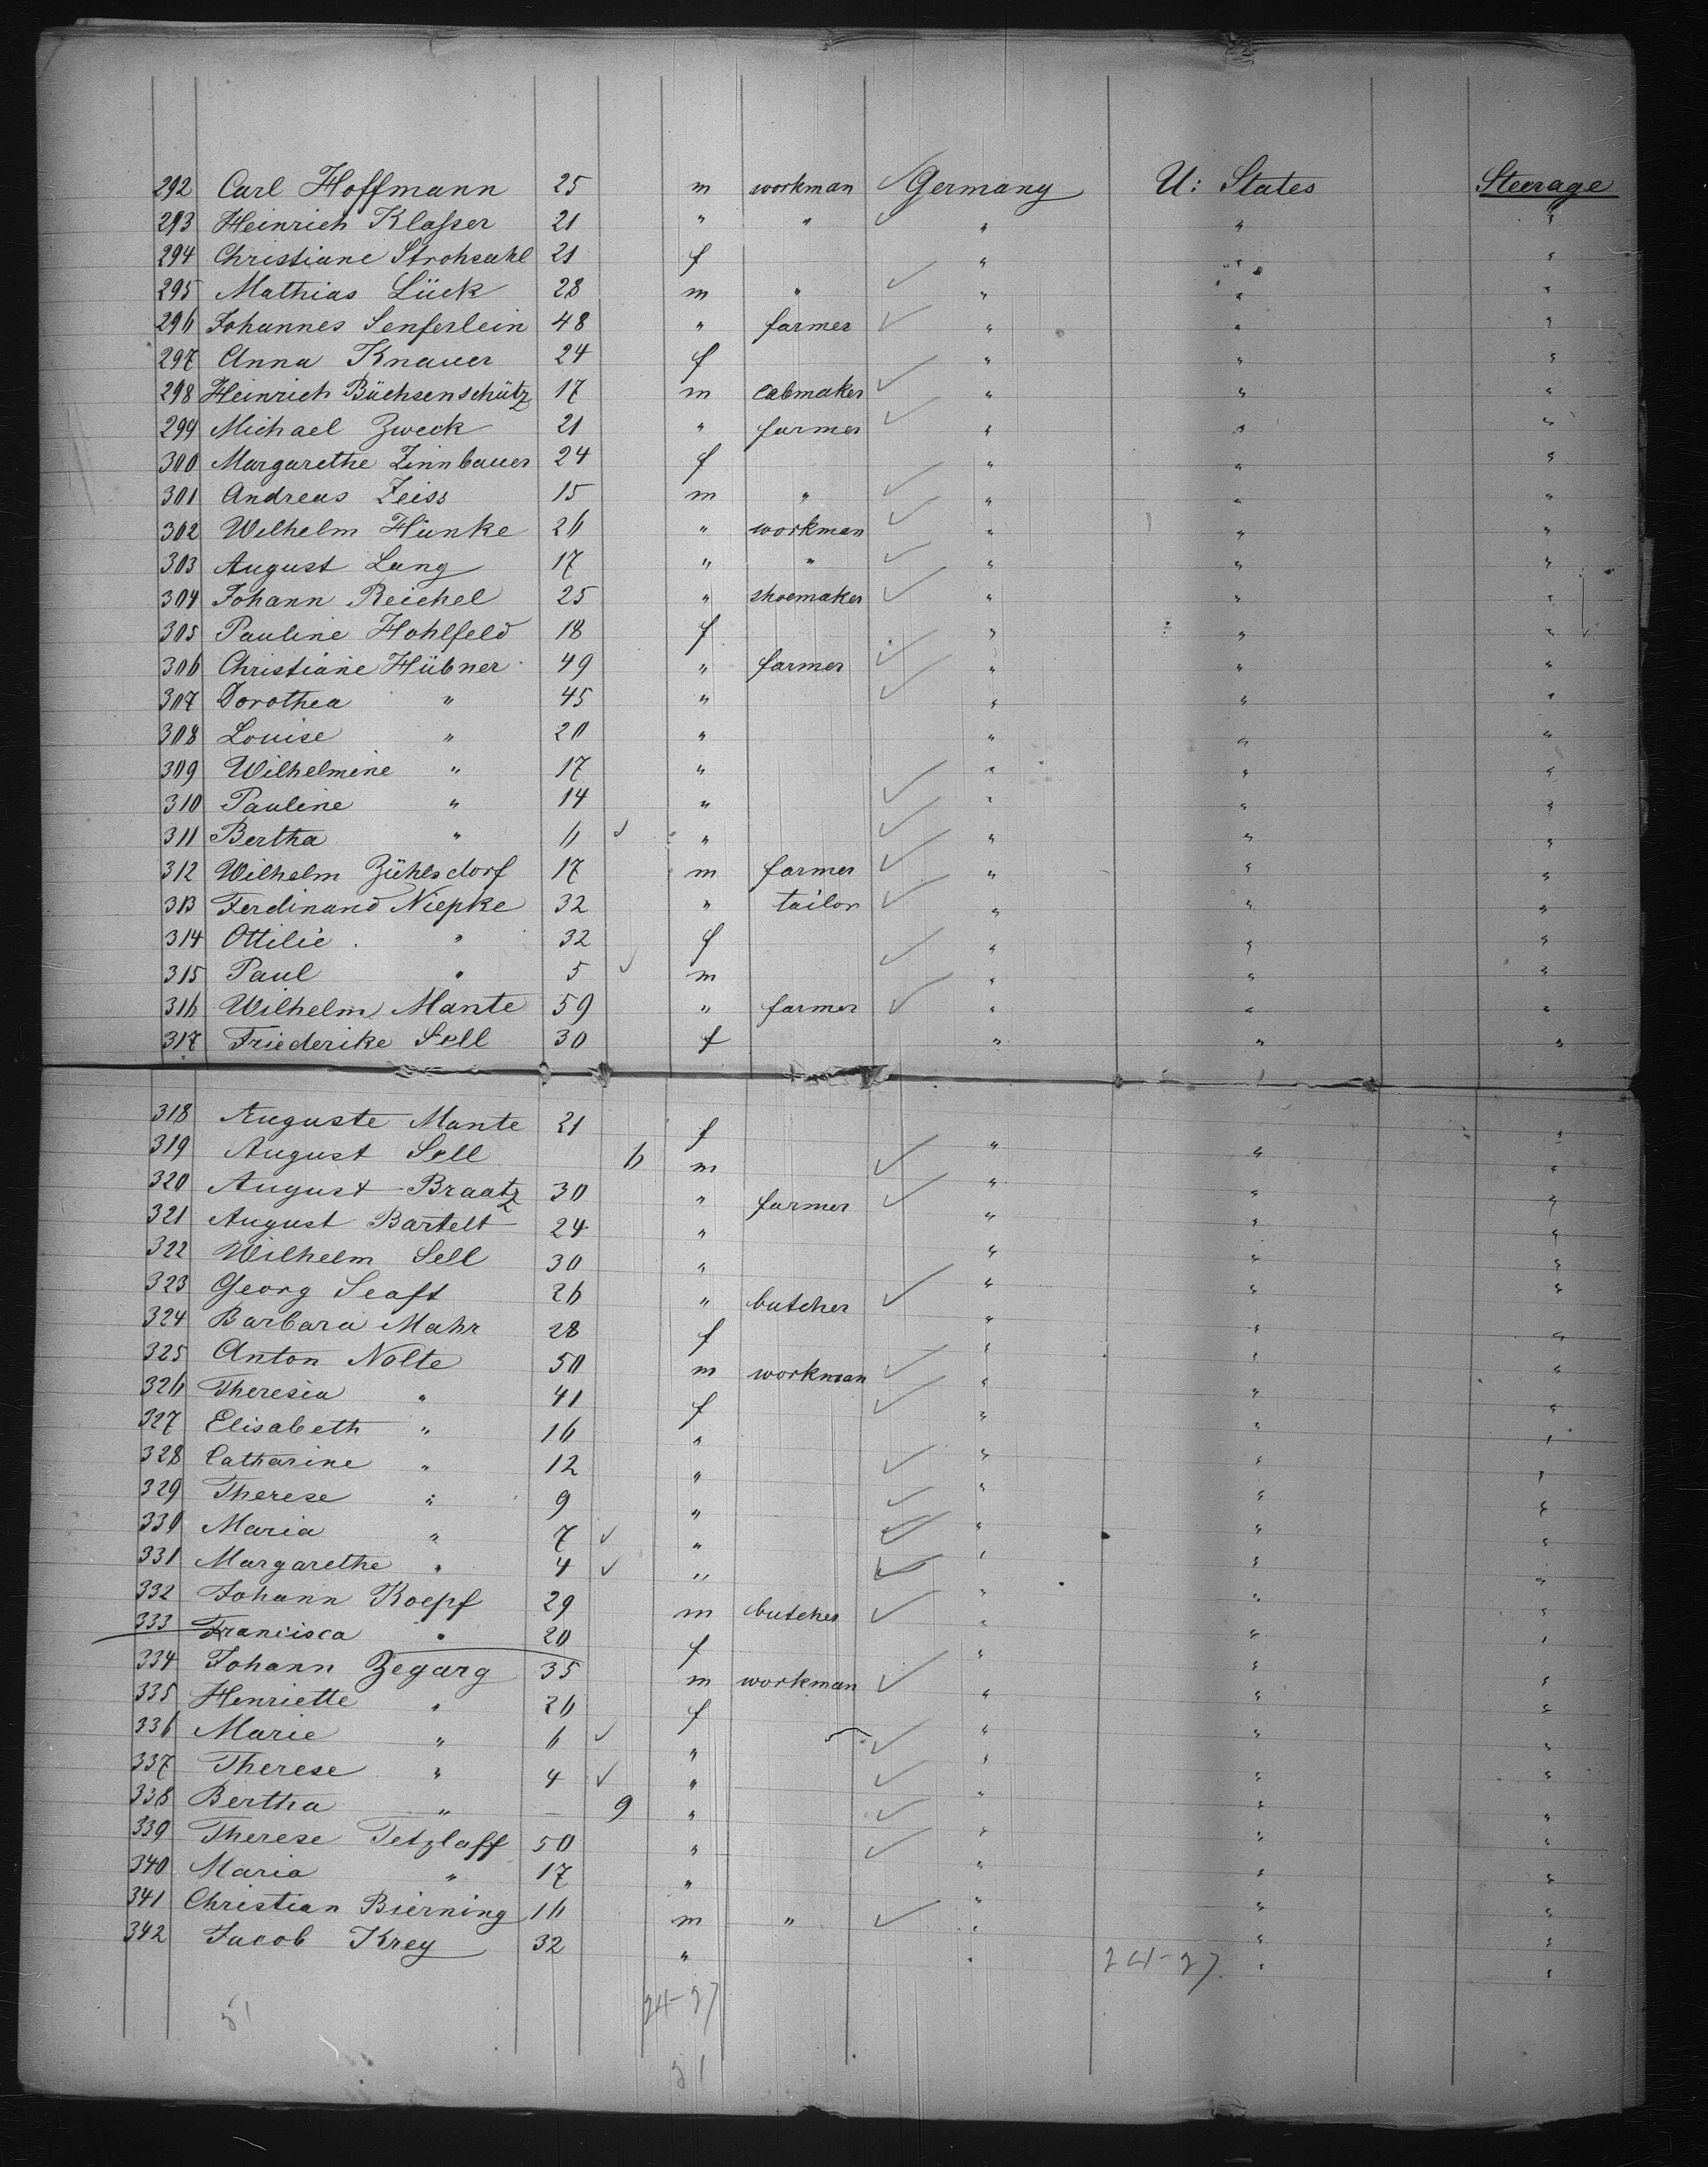 292 Carl Hoffmann 25 m workman Germany U: States Steerage
293 Heinrich Klaßer 21 " " " " "
294 Christiane Strohsahl 21 f " " "
295 Mathias Lück 28 m " " " "
296 Johannes Senferlein 48 " farmer " " "
297 Anna Knauer 24 f " " "
298 Heinrich Büchsenschütz 17 m cabmaker " " "
299 Michael Zweck 21 " farmer " " "
300 Margarethe Zinnbauer 24 f " " "
301 Andreas Zeiss 15 m " " " "
302 Wilhelm Hünke 26 " workman " " "
303 August Lang 17 " " " " "
304 Johann Reichel 25 " shoemaker " " "
305 Pauline Hohlfeld 18 f " " "
306 Christiane Hübner 49 " farmer " " "
307 Dorothea " 45 " " " "
308 Louise " 20 " " " "
309 Wilhelmine " 17 " " " "
310 Pauline " 14 " " " "
311 Bertha " 6 ✓ " " " "
312 Wilhelm Zühlsdorf 17 m farmer " " "
313 Ferdinand Niepke 32 " tailor " " "
314 Ottilie " 32 f " " "
315 Paul " 5 ✓ m " " "
316 Wilhelm Mante 59 " farmer " " "
317 Friederike Sell 30 f " " "
318 Auguste Mante 21 f " " "
319 August Sell 6 m " " "
320 August Braatz 30 " farmer " " "
321 August Bartelt 24 " " " "
322 Wilhelm Sell 30 " " " "
323 Georg Seaft 26 " butcher " " "
324 Barbara Mahr 28 f " " "
325 Anton Nolte 50 m workman " " "
326 Theresia " 41 f " " "
327 Elisabeth " 16 " " " "
328 Catharine " 12 " " " "
329 Therese " 9 " " " "
330 Maria " 7 ✓ " " " "
331 Margarethe " 4 ✓ " " " "
332 Johann Roepf 29 m butcher " " "
333 Francisca " 20 f " " "
334 Johann Zegarg 35 m workman " " "
335 Henriette " 26 f " " "
336 Marie " 6 ✓ " " " "
337 Therese " 4 ✓ " " " "
338 Bertha " — 9 " " " "
339 Therese Tetzlaff 50 " " " "
340 Maria " 17 " " " "
341 Christian Bierning 16 m " " " "
342 Jacob Krey 32 " " " "
24-27
51 24-27
51